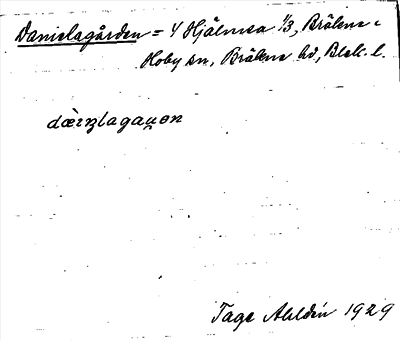 Danielagården = 4 Hjälmsa 1/3, Bräkne-
Hoby sn, Bräkne hd, Blek. l.
dæ̀ɪnlagau̯ən
Tage Ahldin 1929